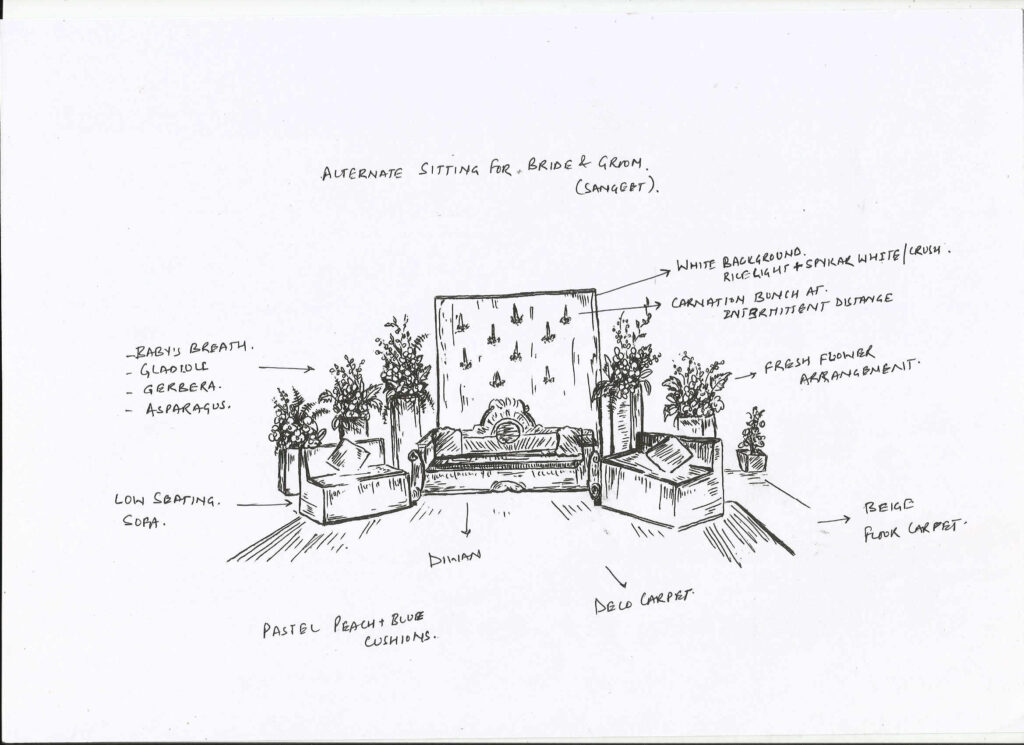 ALTERNATE SITTING FOR BRIDE & GROOM.
(SANGEET).
WHITE BACKGROUND.
RICELIGHT + SPYKAR WHITE/CRUSH.
CARNATION BUNCH AT.
INTERMITTENT DISTANCE
- BABY'S BREATH.
- GLADIOLI
- GERBERA.
- ASPARAGUS.
FRESH FLOWER
ARRANGEMENT.
LOW SEATING.
SOFA.
BEIGE
FLOOR CARPET.
DIWAN
DECO CARPET.
PASTEL PEACH + BLUE
CUSHIONS.